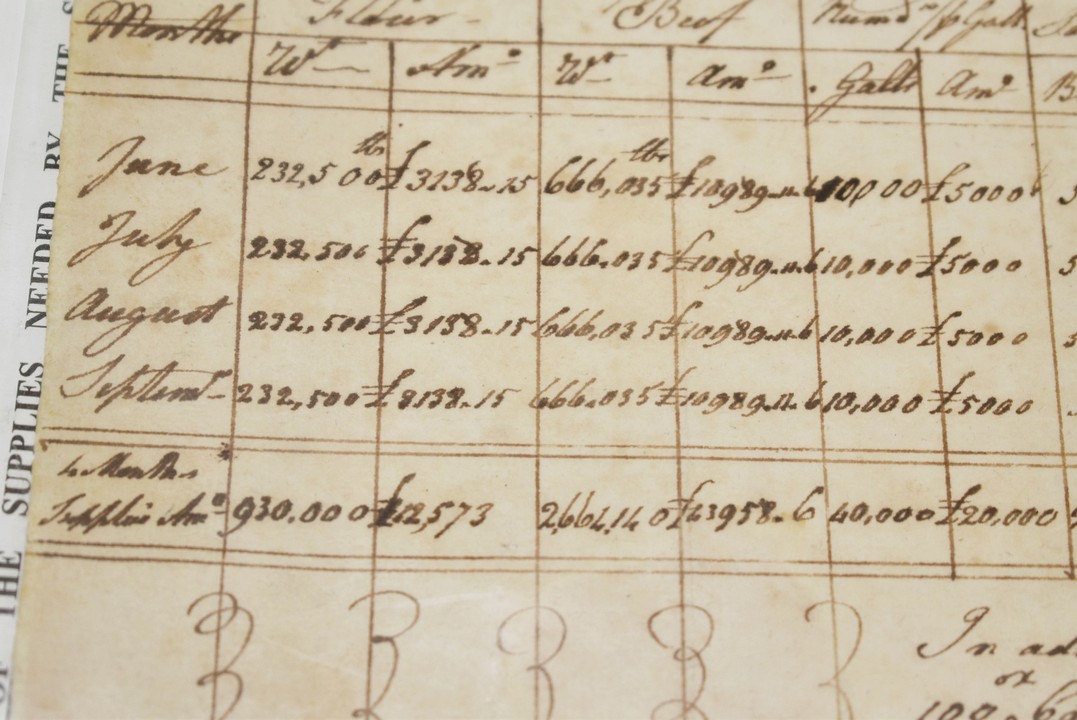 Months Flour Beef Rum @ 10/ p Gall
Wt Amo Wt Amo Galls Amo B
June 232,500 lbs £3138..15 666,035 lbs £10989..11..6 10,000 £5000
July 232,500 £3138..15 666,035 £10989..11..6 10,000 £5000
August 232,500 £3138..15 666,035 £10989..11..6 10,000 £5000
Septemr 232,500 £3138..15 666,035 £10989..11..6 10,000 £5000
4 Months
Supplies Amo 930,000 £12,573 2,664,140 £43958..6 40,000 £20,000
In ad
ox
OF THE SUPPLIES NEEDED BY THE S